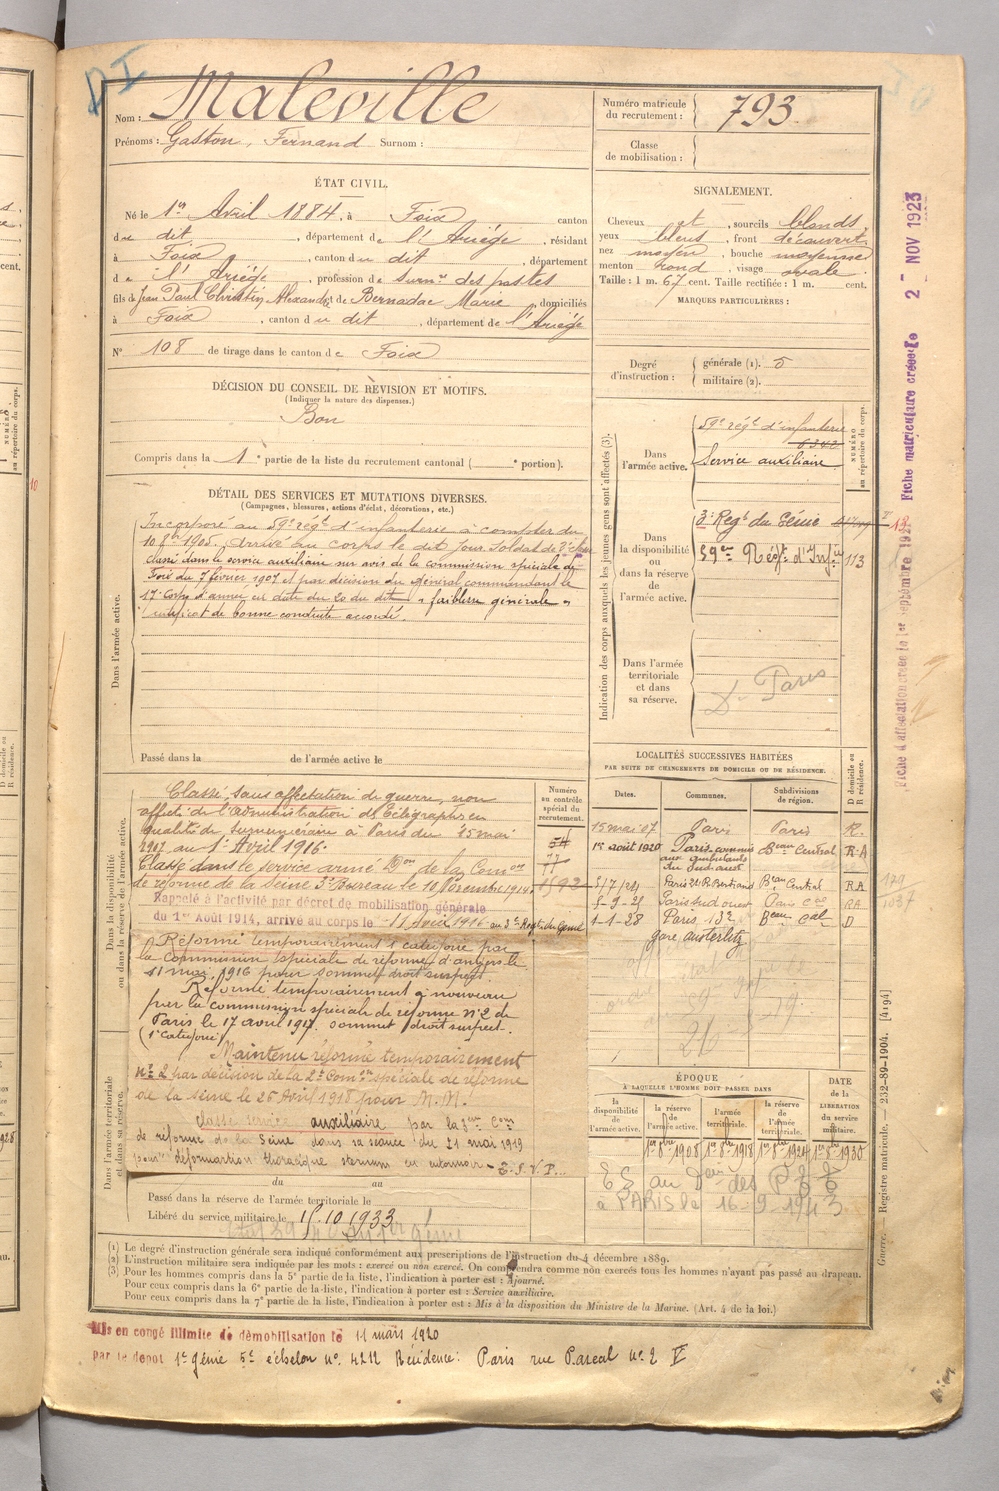 DI
Nom : Maleville
Prénoms : Gaston, Fernand Surnom :
Numéro matricule du recrutement : 793
Classe de mobilisation :
ÉTAT CIVIL.
Né le 1er Avril 1884, à Foix canton
du dit, département de l'Ariège, résidant
à Foix, canton du dit, département
de l'Ariège, profession de surnre des postes
fils de Jean Paul Christin Alexandre et de Bernadac Marie, domiciliés
à Foix, canton du dit, département de l'Ariège
N° 108 de tirage dans le canton de Foix
SIGNALEMENT.
Cheveux et, sourcils blonds,
yeux bleus, front découvert
nez moyen, bouche moyenne
menton rond, visage ovale.
Taille : 1 m. 67 cent. Taille rectifiée : 1 m. cent.
MARQUES PARTICULIÈRES :
Degré d'instruction : générale (1). 5
militaire (2).
DÉCISION DU CONSEIL DE RÉVISION ET MOTIFS.
(Indiquer la nature des dispenses.)
Bon
Compris dans la 1e partie de la liste du recrutement cantonal ( e portion).
DÉTAIL DES SERVICES ET MUTATIONS DIVERSES.
(Campagnes, blessures, actions d'éclat, décorations, etc.)
Dans l'armée active.
Incorporé au 59e régt d'infanterie à compter du
10 8bre 1905, arrivé au corps le dit jour, soldat de 2e classe
classé dans le service auxiliaire sur avis de la commission spéciale de
Foix du 7 février 1907 et par décision du Général commandant le
17e Corps d'armée en date du 20 du dit « faiblesse générale »
certificat de bonne conduite accordé.
Passé dans la de l'armée active le
Indication des corps auxquels les jeunes gens sont affectés (3).
NUMÉRO au répertoire du corps.
Dans l'armée active.
59e régt d'infanterie
6342
Service auxiliaire
Dans la disponibilité ou dans la réserve de l'armée active.
3e Regt du Génie
59ème Régt. d'Infie 113
Dans l'armée territoriale et dans sa réserve.
Paris
LOCALITÉS SUCCESSIVES HABITÉES
PAR SUITE DE CHANGEMENTS DE DOMICILE OU DE RÉSIDENCE.
Dates. Communes. Subdivisions de région. D domicile ou R résidence.
15 mai 07 Paris Paris R.
1er août 1920 Paris commis aux ambulants du Sud-ouest Beau Central R.A
5/7/24 Paris 21 R Bertrans Beau Central RA
5-9-25 Paris sud ouest Paris Cal RA
1-1-28 Paris 13e Beau Cal D
gare austerlitz
Dans la disponibilité ou dans la réserve de l'armée active.
Numéro au contrôle spécial du recrutement.
54
77
1593
Classé, sans affectation de guerre, non
affecté de l'administration des Télégraphes en
qualité de surnuméraire à Paris du 15 mai
1907 au 1er Avril 1916.
Classé dans le service armé Don de la Comon
de réforme de la Seine 3e Bureau le 10 Novembre 1914
Rappelé à l'activité par décret de mobilisation générale
du 1er Août 1914, arrivé au corps le 11 Avril 1916 au 3e Regt du Génie
Réformé temporairement 1e catégorie par
la Commission spéciale de réforme d'angers le
11 mai 1916 pour sommet droit suspect.
Réformé temporairement à nouveau
par la commission spéciale de réforme n°2 de
Paris le 17 avril 1917. sommet droit suspect.
(1e catégorie)
Maintenu réformé temporairement
n° 2 par décision de la 2e Comon spéciale de réforme
de la Seine le 26 Avril 1918 pour M. M.
Dans l'armée territoriale et dans sa réserve.
classé service auxiliaire par la 3ème Com
de réforme de la Seine dans sa séance du 21 mai 1919
pour déformation thoracique sternum en entonnoir
du au
Passé dans la réserve de l'armée territoriale le
Libéré du service militaire le 15.10.1933
ÉPOQUE
À LAQUELLE L'HOMME DOIT PASSER DANS
la disponibilité de l'armée active.
la réserve de l'armée active.
l'armée territoriale.
la réserve de l'armée territoriale.
DATE de la LIBÉRATION du service militaire.
1er 8bre 1908 1er 8bre 1918 1er 8bre 1924 1er 8bre 1930
à PARIS le 16-9-1943
(1) Le degré d'instruction générale sera indiqué conformément aux prescriptions de l'instruction du 4 décembre 1889.
(2) L'instruction militaire sera indiquée par les mots : exercé ou non exercé. On comprendra comme non exercés tous les hommes n'ayant pas passé au drapeau.
(3) Pour les hommes compris dans la 5e partie de la liste, l'indication à porter est : Ajourné.
Pour ceux compris dans la 6e partie de la liste, l'indication à porter est : Service auxiliaire.
Pour ceux compris dans la 7e partie de la liste, l'indication à porter est : Mis à la disposition du Ministre de la Marine. (Art. 4 de la loi.)
Mis en congé illimité de démobilisation le 11 mars 1920
par le dépôt 1er génie 5e échelon n° 4212 Résidence : Paris rue Pascal n° 2 V
Guerre. — Registre matricule. — 232-89-1904. [4194]
Fiche matriculaire créée le 2 - NOV 1923